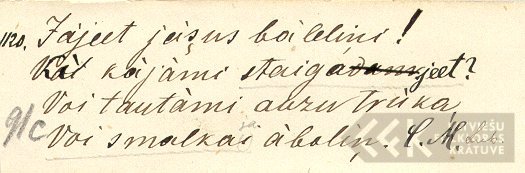 1120. Jājeet jeisus bāleliņi!
Kāi kājāmi staigājeet?
Voi tautāmi auzu trūka,
91c Voi smalkai āboliņ.
LATVIEŠU
FOLKLORAS
KRĀTUVE